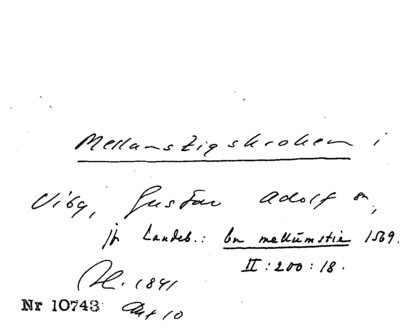 Mellanstigskroken i
Viby, Gustav Adolf sn,
jfr Landeb.: bn mellumstie 1569.
II:200:18.
H. 1841
Nr 10743 Akt 10